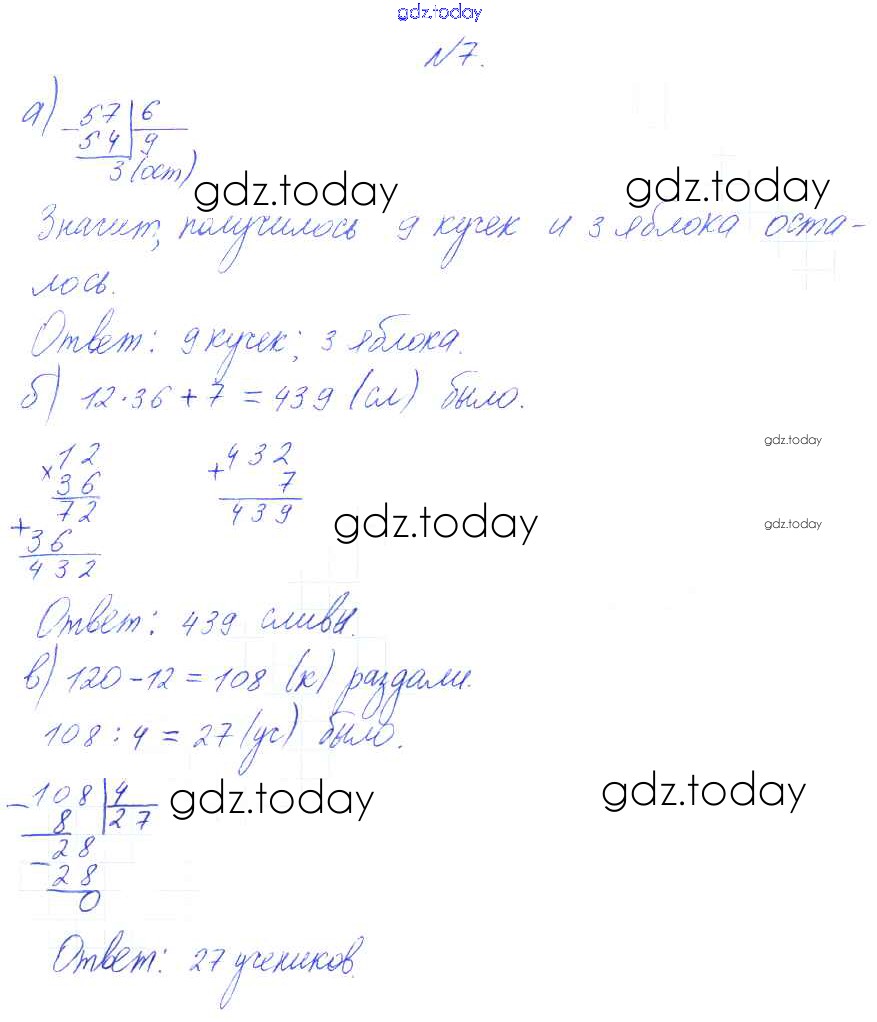 gdz.today
N7.
а) 57 | 6
- 54 | 9
3 (ост)
gdz.today gdz.today
Значит, получилось 9 кучек и 3 яблока оста-
лось.
Ответ: 9 кучек; 3 яблока.
б) 12·36 + 7 = 439 (сл) было.
gdz.today
× 12
36
72
+ 36
432
+ 432
7
439
gdz.today
gdz.today
Ответ: 439 сливы.
в) 120 - 12 = 108 (к) раздали.
108 : 4 = 27 (уч) было.
- 108 | 4
8 | 27
- 28
28
0
gdz.today gdz.today
Ответ: 27 учеников.